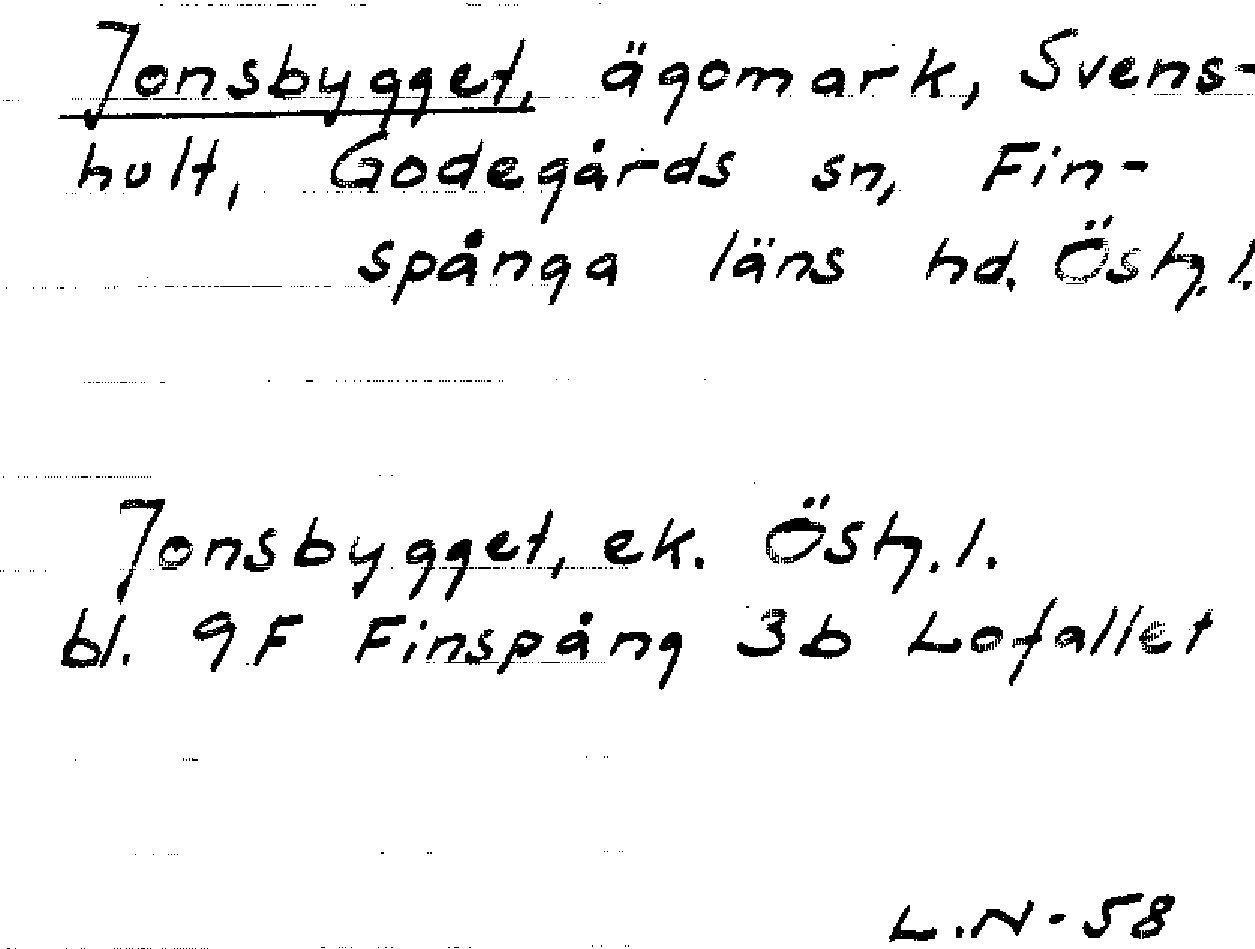 Jonsbygget, ägomark, Svens-
hult, Godegårds sn, Fin-
spånga läns hd. Östg.l.
Jonsbygget, ek. Östg.l.
bl. 9F Finspång 3b Lofallet
L.N-58